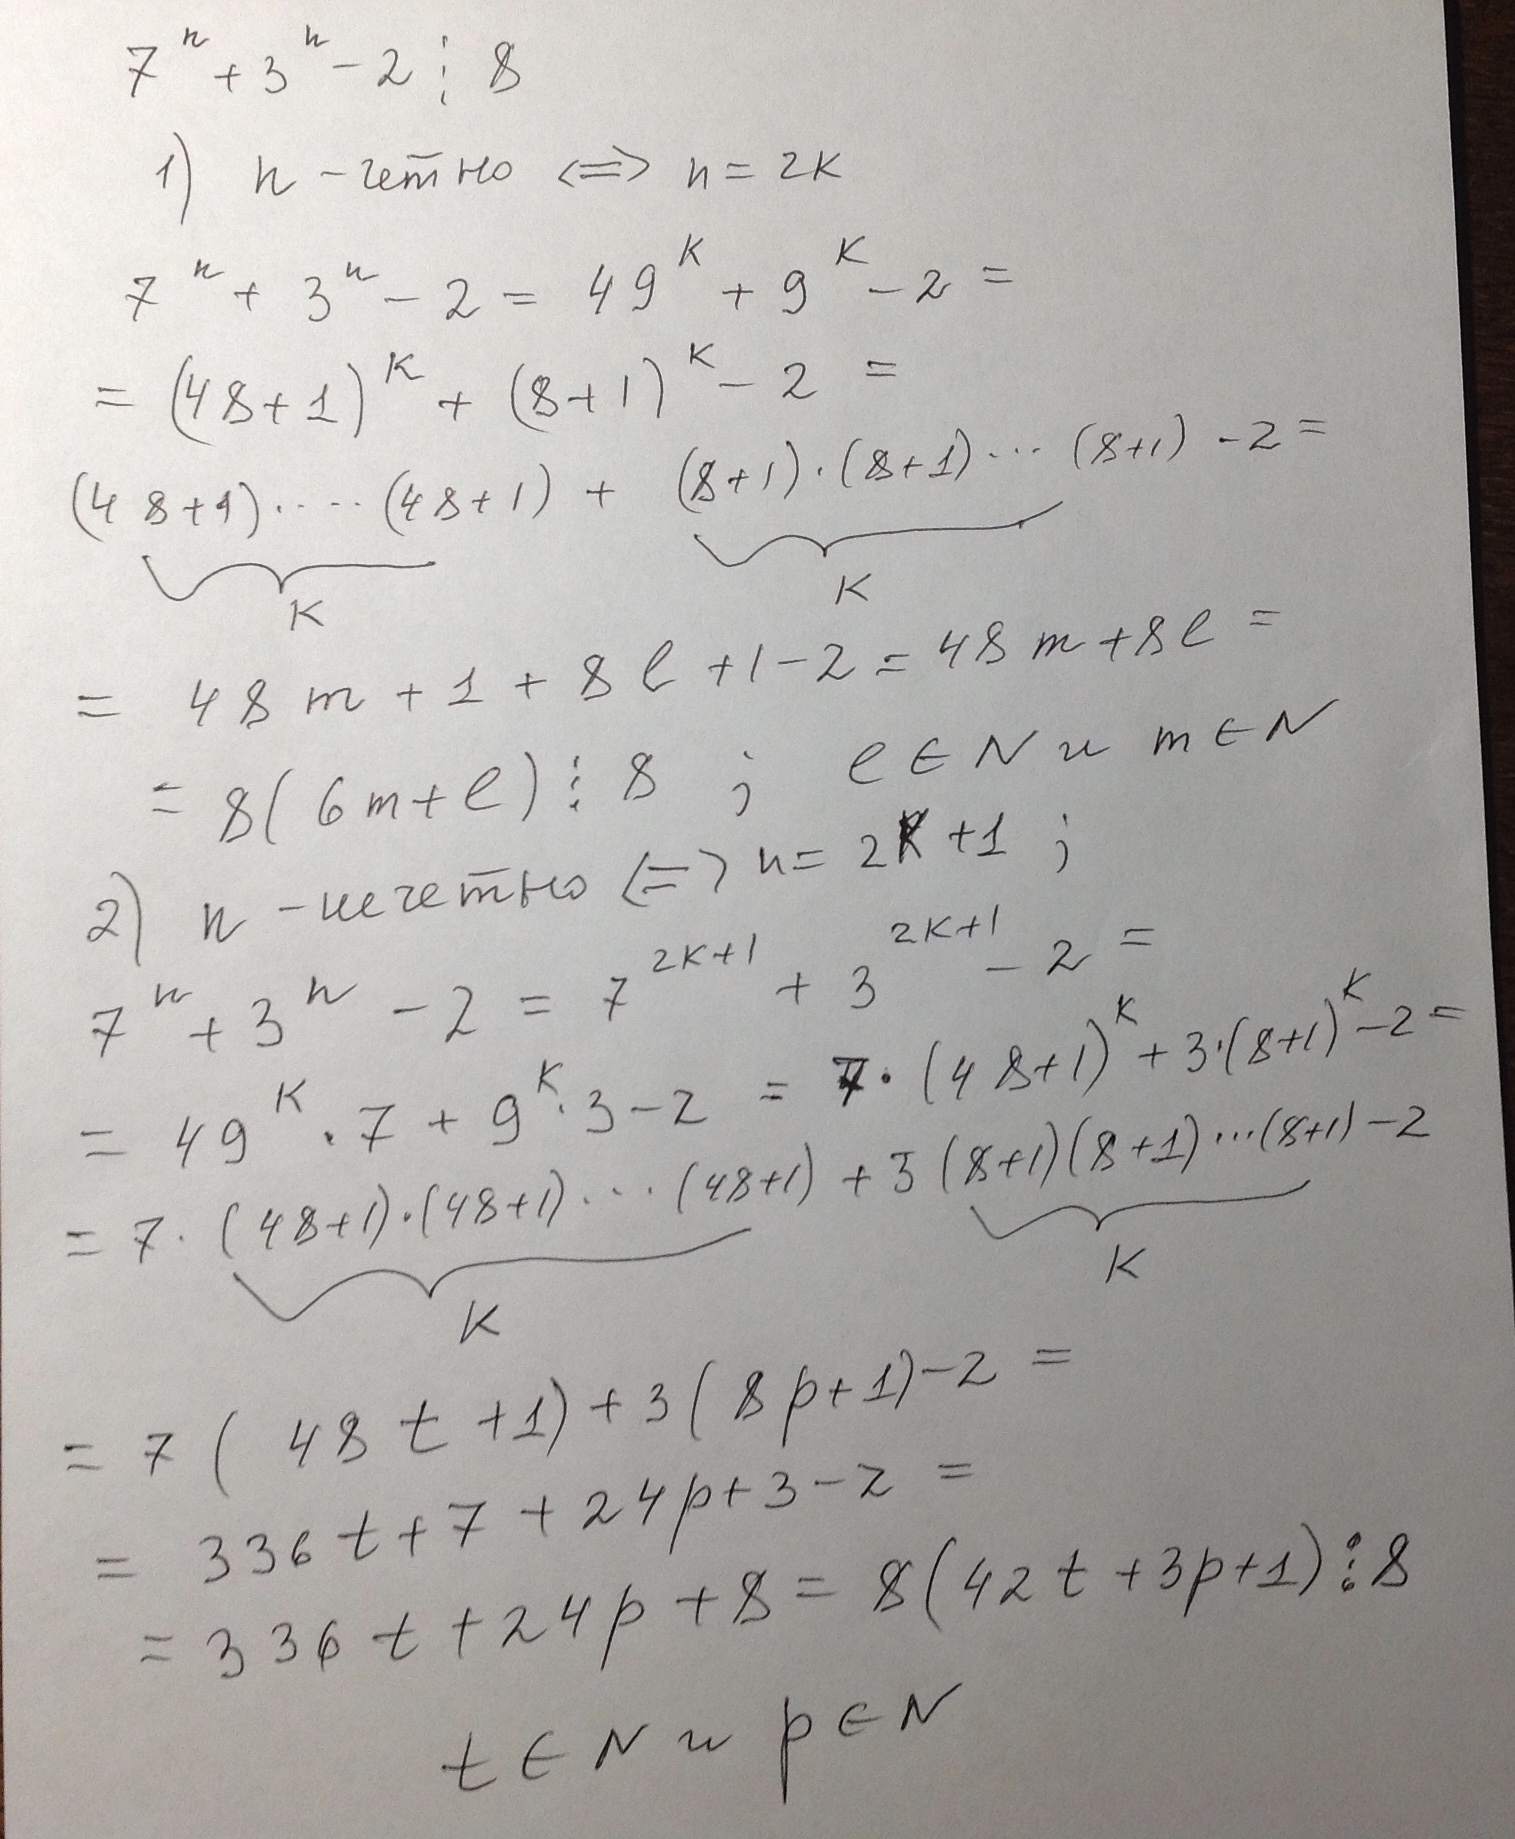 7ⁿ + 3ⁿ - 2 ⋮ 8
1) n - четно <=> n = 2K
7ⁿ + 3ⁿ - 2 = 49^K + 9^K - 2 =
= (48+1)^K + (8+1)^K - 2 =
(48+1)·....(48+1) + (8+1)·(8+1)...(8+1) - 2 =
K K
= 48m + 1 + 8l + 1 - 2 = 48m + 8l =
= 8(6m+l) ⋮ 8 ; l ∈ N и m ∈ N
2) n - нечетно <=> n = 2K+1 ;
7ⁿ + 3ⁿ - 2 = 7^(2K+1) + 3^(2K+1) - 2 =
= 49^K · 7 + 9^K · 3 - 2 = 7·(48+1)^K + 3·(8+1)^K - 2 =
= 7·(48+1)·(48+1)...(48+1) + 3(8+1)(8+1)...(8+1) - 2
K K
= 7(48t+1) + 3(8p+1) - 2 =
= 336t + 7 + 24p + 3 - 2 =
= 336t + 24p + 8 = 8(42t + 3p + 1) ⋮ 8
t ∈ N и p ∈ N